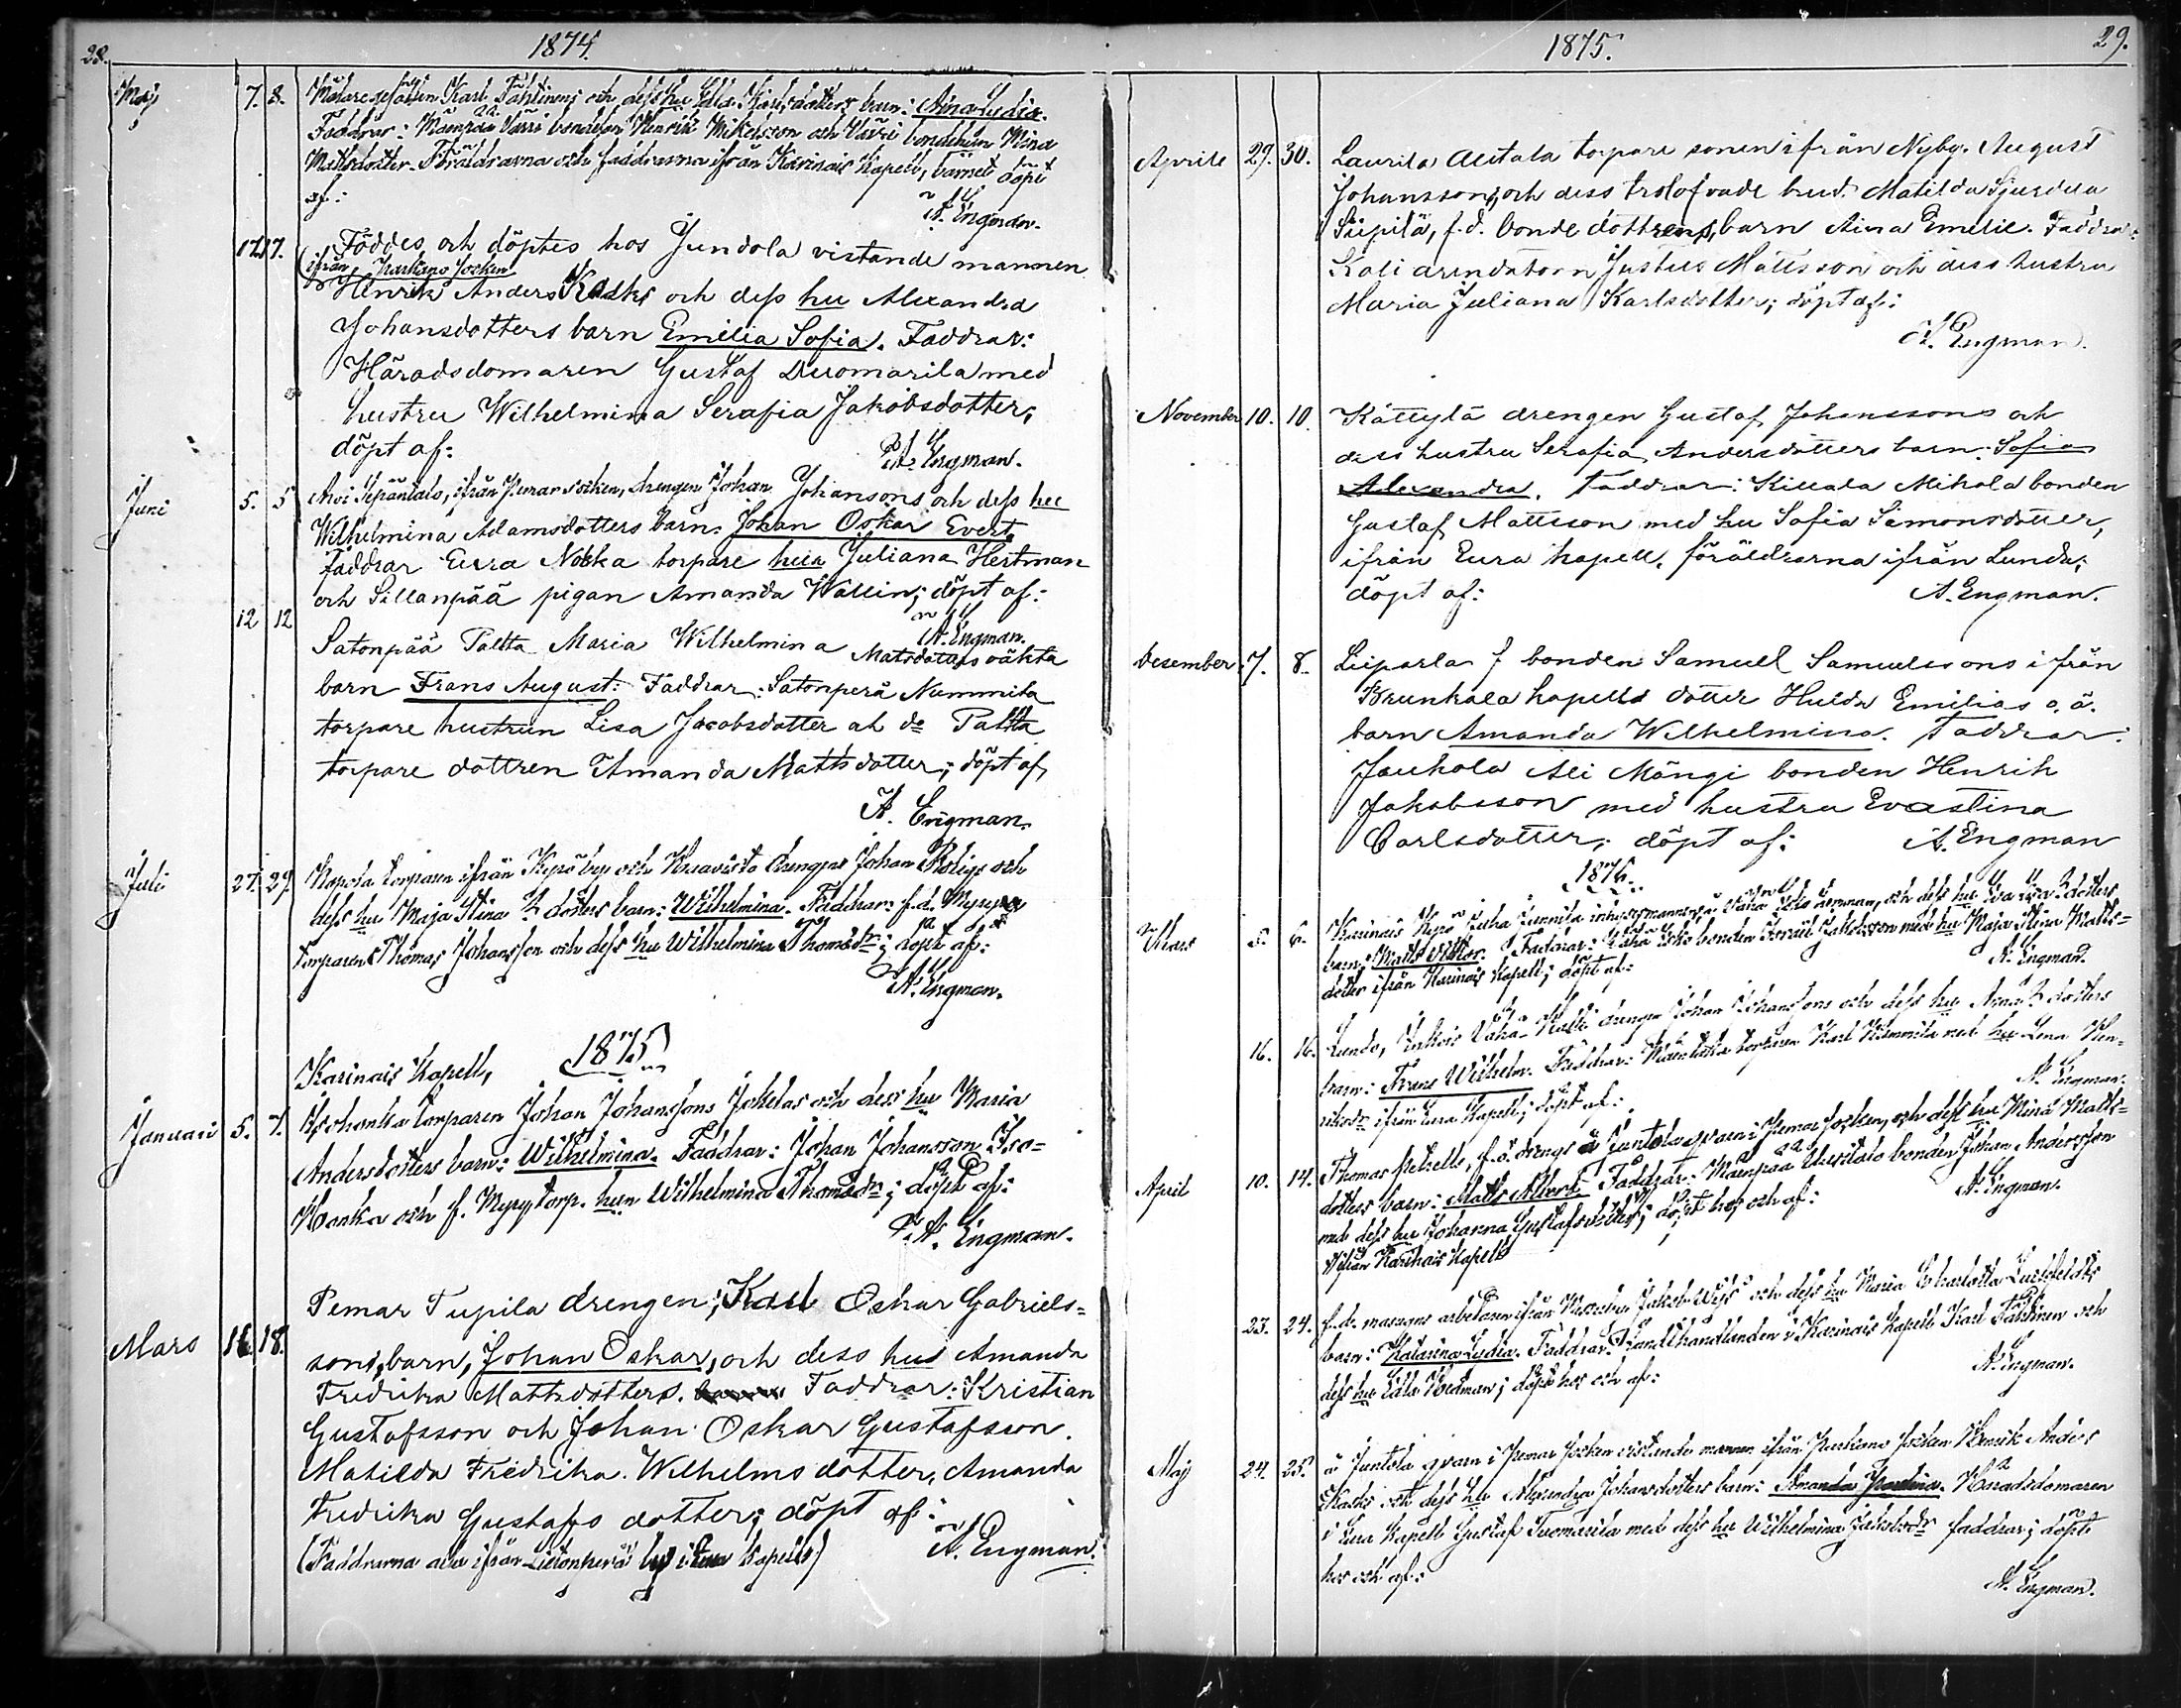 28.
1874.
Maj
7. 8. Målaregesällen Karl Tähtinens och dess hu Edla Karlsdotters barn: Aina Lydia.
Faddrar: Mäenpää Värri bondeson Henrik Mikelsson och Värri bondehun Mina
Mattsdotter. Föräldrarna och faddrarna ifrån Karinais Kapell, barnet döpt
af:
A. Engman.
17. 17. Föddes och döptes hos Jundola vistande mannen
(ifrån Karkano Socken
Henrik Anders Kasks och dess hu Alexandra
Johansdotters barn Emelia Sofia. Faddrar:
Häradsdomaren Gustaf Duomarila med
hustru Wilhelmina Serafia Jakobsdotter;
döpt af:
A. Engman.
Juni
5. 5 Arvi Sepäntalo, ifrån Pemar socken, drengen Johan Johansons och dess hu
Wilhelmina Adamsdotters barn. Johan Oskar Evert.
Faddrar Eura Nokka torpare hun Juliana Hertman
och Sillanpää pigan Amanda Wallin; döpt af:
A. Engman.
12 12
Satonpää Paltta Maria Wilhelmina Matsdotters oäkta
barn Frans August: Faddrar: Satonperä Nummita
torpare hustrun Lisa Jacobsdotter ah do Paltta
torpare dottren Amanda Mattsdotter; döpt af,
A. Engman.
Juli
27. 29. Kapola torparen ifrån Kyrö by och Knavisto drengens Johan Roligs och
dess hu Maja Stina dotters barn: Wilhelmina. Faddrar: f.d. Myry
torparens Thomas Johansson och dess hu Wilhelmina Thomasdr; döpt af:
A. Engman.
Karinais Kapell, 1875
Januari 5. 7. Isohonka torparen Johan Johanssons Jokelas och dess hu Maria
Andersdotters barn: Wilhelmina. Faddrar: Johan Johansson Iso=
Honka och f. Myry torp. hun Wilhelmina Thomasdr; döpt af:
A. Engman.
Mars 16. 18. Pemar Tupila drengen, Karl Oskar Gabriels=
sons, barn, Johan Oskar, och dess hus Amanda
Fredrika Mattsdotters. Faddrar: Kristian
Gustafsson och Johan Oskar Gustafsson.
Matilda Fredrika Wilhelms dotter, Amanda
Fredrika Gustafs dotter; döpt af:
(Faddrarna alla ifrån Lietonperä by i Eura Kapell) A. Engman.
1875.
29.
Aprill 29. 30. Laurila Alitala torpare sonen ifrån Nyby. August
Johanssons, och dess trolofvade brud. Matilda
Siipilä, f.d. bonde dottrens, barn Aina Emelie. Faddrar:
Kali arendatorn Justus Mattsson och dess hustru
Maria Juliana Karlsdotter; döpt af:
A. Engman.
November 10. 10. Kättylä drengen Gustaf Johanssons och
dess hustru Serafia Andersdotters barn. Sofia
Alexandra. Faddrar: Kiuala Mikola bonden
Gustaf Mattsson med hu Sofia Simonsdotter,
ifrån Eura Kapell, föräldrarna ifrån Lundo;
döpt af:
A. Engman.
Desember 7. 8. Liiparla f bonden Samuel Samuelssons ifrån
Krunkala kapells dotter Hulda Emilias o.ä.
barn Amanda Wilhelmina. Faddrar:
Jaukola Ali Mängi bonden Henrik
Jakobsson med hustru Evastina
Carlsdotter; döpt af:
A. Engman
1876.
Mars 5. 6. Karinais Kyrö inhysesmannens och dess hu Eva dotters
barn: Matts Viktor. Faddrar: bonden Israel Jakobsson med hu Maja Stina Matts=
dotter ifrån Karinais Kapell; döpt af:
A. Engman.
16. 16. Lundo, Vähä drengen Johan Johanssons och dess hu dotters
barn: Frans Wilhelm. Faddrar: torparen Karl Nummila med hu Lena Hen=
riksdr ifrån Eura Kapell; döpt af:
A. Engman.
April 10. 14. Thomas f.d. drengs å Juntola qvarn i Pemar Socken, och dess hu Mina Matts=
dotters barn: Matts Albert. Faddrar: Mäenpää Uusitalo bonden Johan Andersson
med dess hu Johanna Gustafsdotter; döpt hos och af:
ifrån Karinais Kapell
A. Engman.
23. 24. f.d. masugns arbetaren ifrån Jakob och dess hu Maria Charlotta
barn: Katarina Lydia. Faddrar: Handlanden i Karinais Kapell Karl Tähtinen och
dess hu Edla Hedman; döpt hos och af:
A. Engman.
Maj 24. 25. å Juntola qvarn i Pemar Socken vistande mannen ifrån Karkano Socken Henrik Anders
Kasks och dess hu Alexandra Johansdotters barn: Amanda Paulina. Häradsdomaren
i Eura Kapell Gustaf Tuomarila med dess hu Wilhelmina Jakobsdr faddrar; döpt
hos och af:
A. Engman.